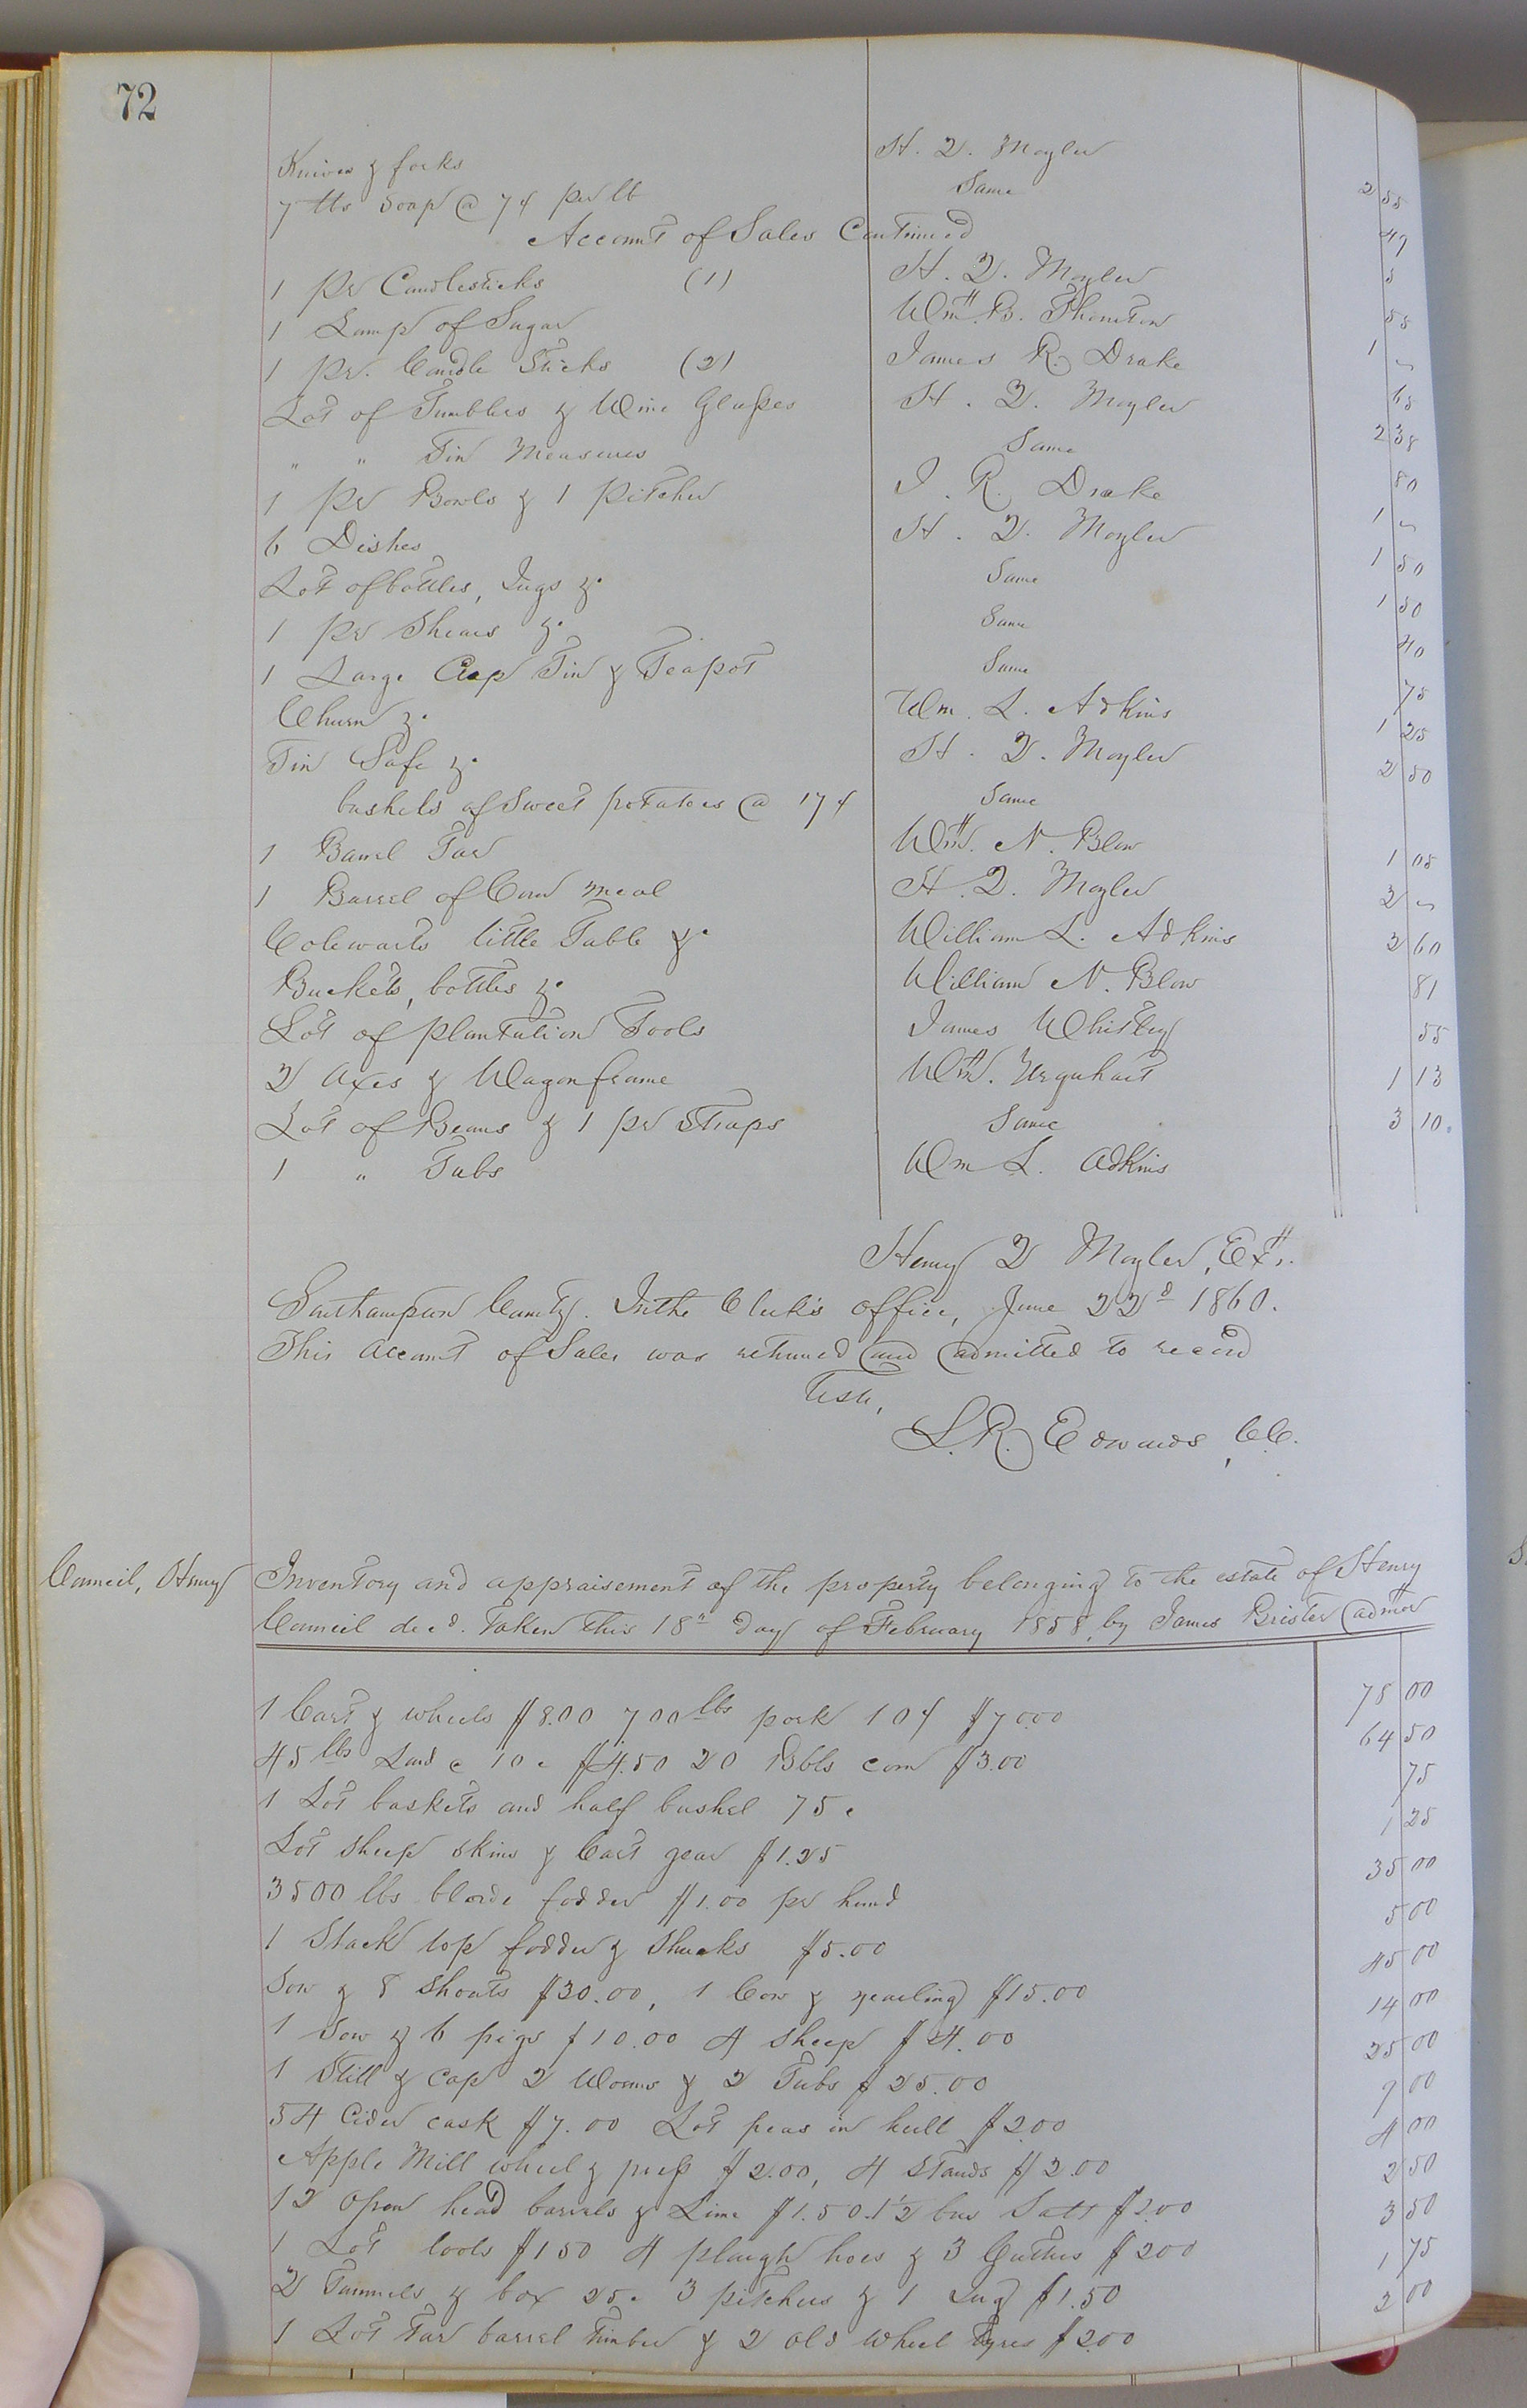 72
Knives & forks H. D. Moyler
7 lbs Soap @ 7¢ per lb Same 2 55
Account of Sales Continued 49
1 Pr Candlesticks (1) H. D. Moyler 5
1 Lump of Sugar Wm. B. Thornton 55
1 Pr. Candle Sticks (2) James R. Drake 1 "
Lot of Tumblers & Wine Glasses H. D. Moyler 65
" " Tin Measures Same 2 38
1 Pr Bowls & 1 Pitcher J. R. Drake 80
6 Dishes H. D. Moyler 1 "
Lot of bottles, Jugs &c Same 1 50
1 pr Shears &c Same 1 50
1 Large Cup Tin & Teapot Same 40
Churn &c Wm. L. Adkins 75
Tin Safe &c H. D. Moyler 1 25
bushels of Sweet potatoes @ 17¢ Same 2 50
1 Barrel Tar Wm. N. Blow
1 Barrel of Corn Meal H. D. Moyler 1 05
Colewarts little Table &c William L. Adkins 2 "
Buckets, bottles &c William N. Blow 2 60
Lot of Plantation Tools James Whitley 81
2 Axes & Wagon frame Wm. Urquhart 55
Lot of Beans & 1 pr Straps Same 1 13
1 " Tubs Wm L. Adkins 3 10.
Henry D Moyler, Exr.
Southampton County. In the Clerk's office, June 22d 1860.
This Account of Sales was returned and admitted to record
Teste,
L. R. Edwards, C.C.
Council, Henry
Inventory and appraisement of the property belonging to the estate of Henry
Council decd. Taken this 18th day of February 1858, by James Brister admr
1 Cart & wheels $8.00 700 lbs pork 10¢ $70.00 78 00
45 lbs Lard @ 10c $4.50 20 Bbls corn $3.00 64 50
1 Lot baskets and half bushel 75c 75
Lot sheep skins & Cart gear $1.25 1 25
3500 lbs blade fodder $1.00 pr hund 35 00
1 Stack top fodder & shucks $5.00 5 00
Sow & 8 shoats $30.00, 1 Cow & yearling $15.00 45 00
1 Sow & 6 pigs $10.00 4 sheep $4.00 14 00
1 Still & Cap 2 Worms & 2 Tubs $25.00 25 00
54 Cider cask $7.00 Lot peas in hull $2.00 9 00
Apple Mill wheel & press $2.00, 4 Stands $2.00 4 00
12 Open head barrels & Lime $1.50 1½ bus Salt $1.00 2 50
1 Lot tools $1 50 4 plough hoes & 3 Cutters $2 00 3 50
2 Funnels & box 25c 3 pitchers & 1 Jug $1.50 1 75
1 Lot Tar barrel timber & 2 old Wheel Tyres $2.00 2 00